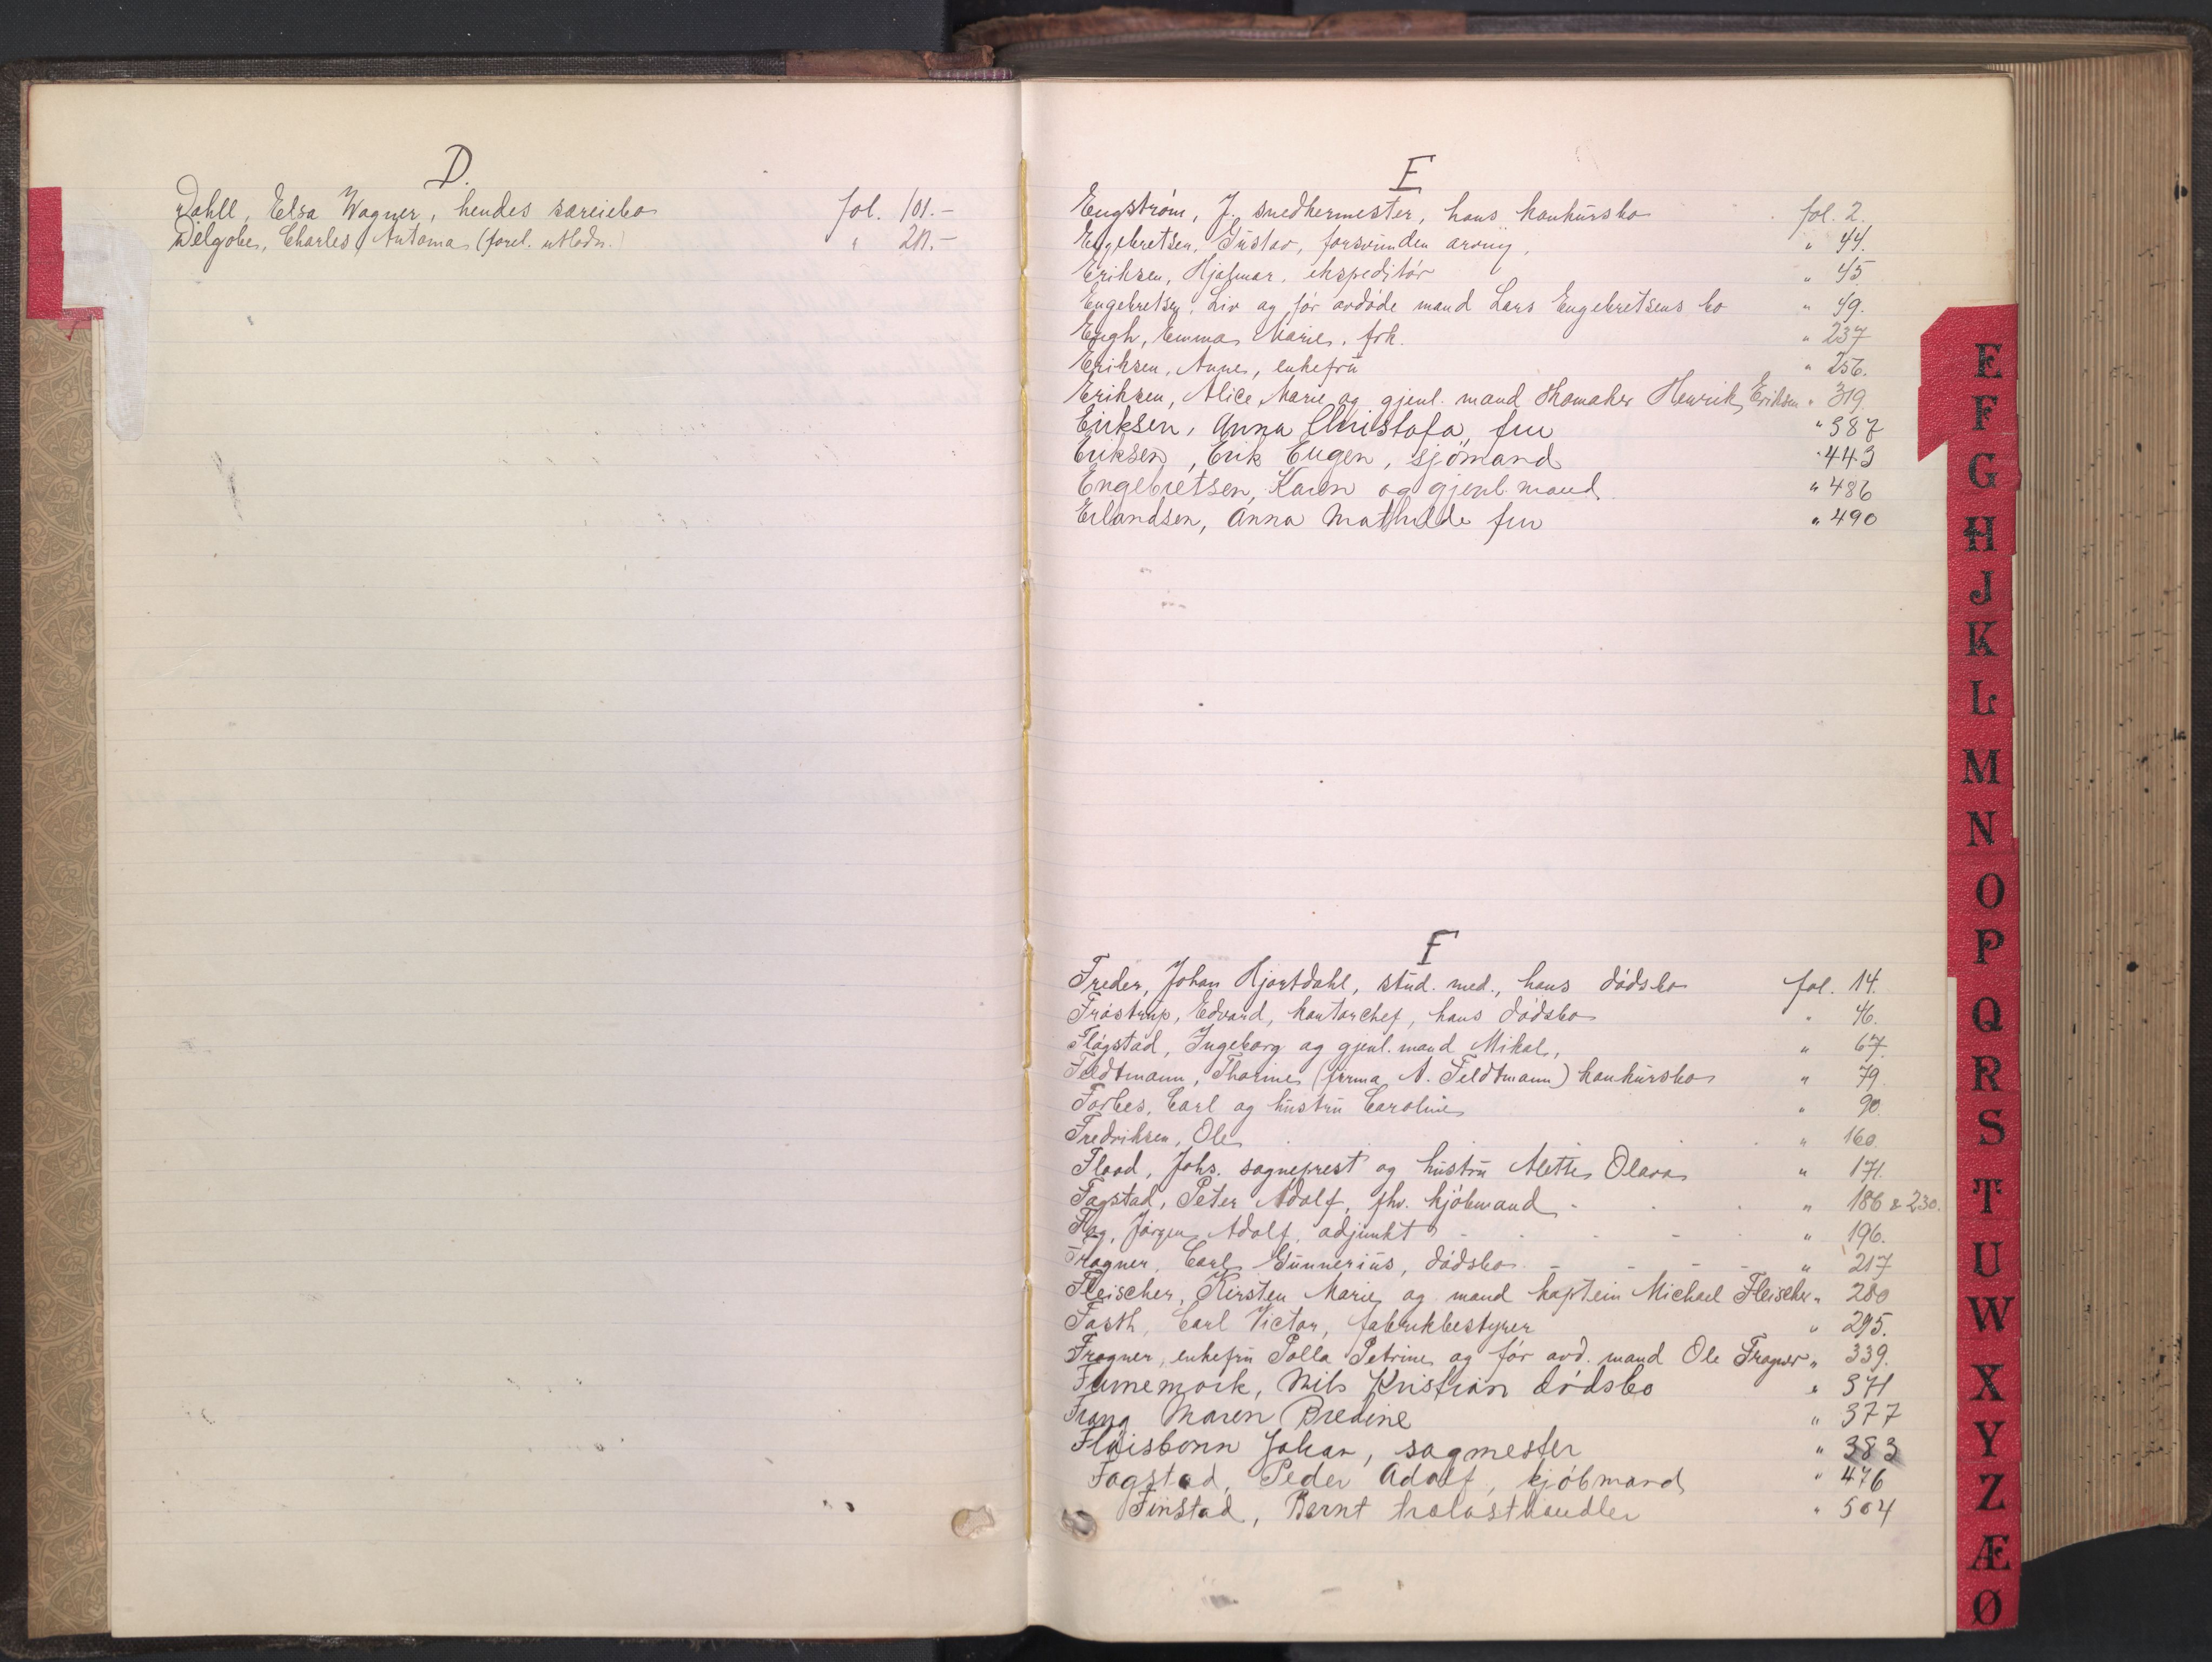 D.
Dahll, Elsa Wagner, hendes særeiebo fol. 101.-
Delgobe, Charles Antoma (forel. utlodn.) " 211.-
E
Engström, J. snedkermester, hans konkursbo fol. 2.
Engebretsen, Gustav, forsvunden arving. " 44.
Eriksen, Hjalmar, ekspeditör " 45
Engebretsen, Liv ogför avdöde mand Lars Engebretsens bo " 49.
Engh, Emma Marie, frk. " 237
Eriksen, Anne, enkefru " 256.
Eriksen, Alice Marie og gjenl. mand skomaker Henrik Eriksen " 319.
Eriksen, Anna Christofa, fru " 387
Eriksen, Erik Eugen, sjömand " 443
Engebretsen, Karen og gjenl. mand " 486
Erlandsen, Anna Mathilde fru " 490
F
Freder, Johan Hjortdahl, stud. med., hans dödsbo fol. 14.
Fröstrup, Edvard, kontorchef, hans dödsbo " 46.
Flögstad, Ingeborg og gjenl. mand Mikal, " 67.
Feldtmann, Thorine (firma A. Feldtmann) konkursbo " 79.
Forbes, Carl og hustru Caroline " 90.
Fredriksen, Ole " 160
Flood, Johs. sogneprest og hustru Alette Olava " 171.
Fagstad, Peter Adolf, fhv. kjöbmand " 186 & 230.
Flog, Jörgen Adolf, adjunkt " 196.
Frogner, Carl Gunnerius, dödsbo " 217
Fleischer, Kirsten Marie og mand kaptein Michael Fleischer " 280
Fasth, Carl Victor, fabrikbestyrer " 295.
Frogner, enkefru Polla Petrine og för avd. mand Ole Frogner " 339.
Furnemork, Nils Kristian dödsbo " 371
Frang Maren Bredine " 377
Flaisbonn Johan, sagmester " 383
Fagstad, Peder Adolf, kjöbmand " 476
Finstad, Bernt trælasthandler " 504
E
F
G
H
J
K
L
M
N
O
P
Q
R
S
T
U
W
X
Y
Z
Æ
Ø